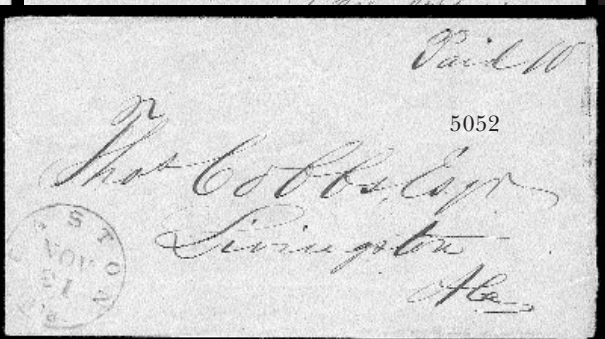 Paid 10
5052
Thos Cobbs, Esqr
Livingston
Ala
STON
NOV
21